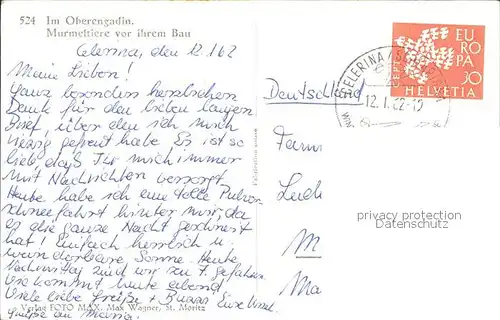 524 Im Oberengadin.
Murmeltiere vor ihrem Bau
Celerina, den 12.1.62
Meine Lieben!
Ganz besonders herzlichen
Dank für den lieben langen
Brief, über den ich mich
riesig gefreut habe. Es ist so
lieb daß Ihr mich immer
mit Nachrichten versorgt.
Heute habe ich eine tolle Pulver-
schneefahrt hinter mir, da
es die ganze Nacht geschneit
hat! Einfach herrlich u.
wunderbare Sonne. Heute
Nachmittag sind wir zu 7. gefahren.
kommt heute abend
Viele liebe Grüße + Eure
Grüße an Mama.
Verlag FOTO MAX, Max Wagner, St. Moritz
Deutschland
CELERINA
12.1.62-19
CEPT
EUROPA
30
HELVETIA
Fam
M
Ma
privacy protection
Datenschutz